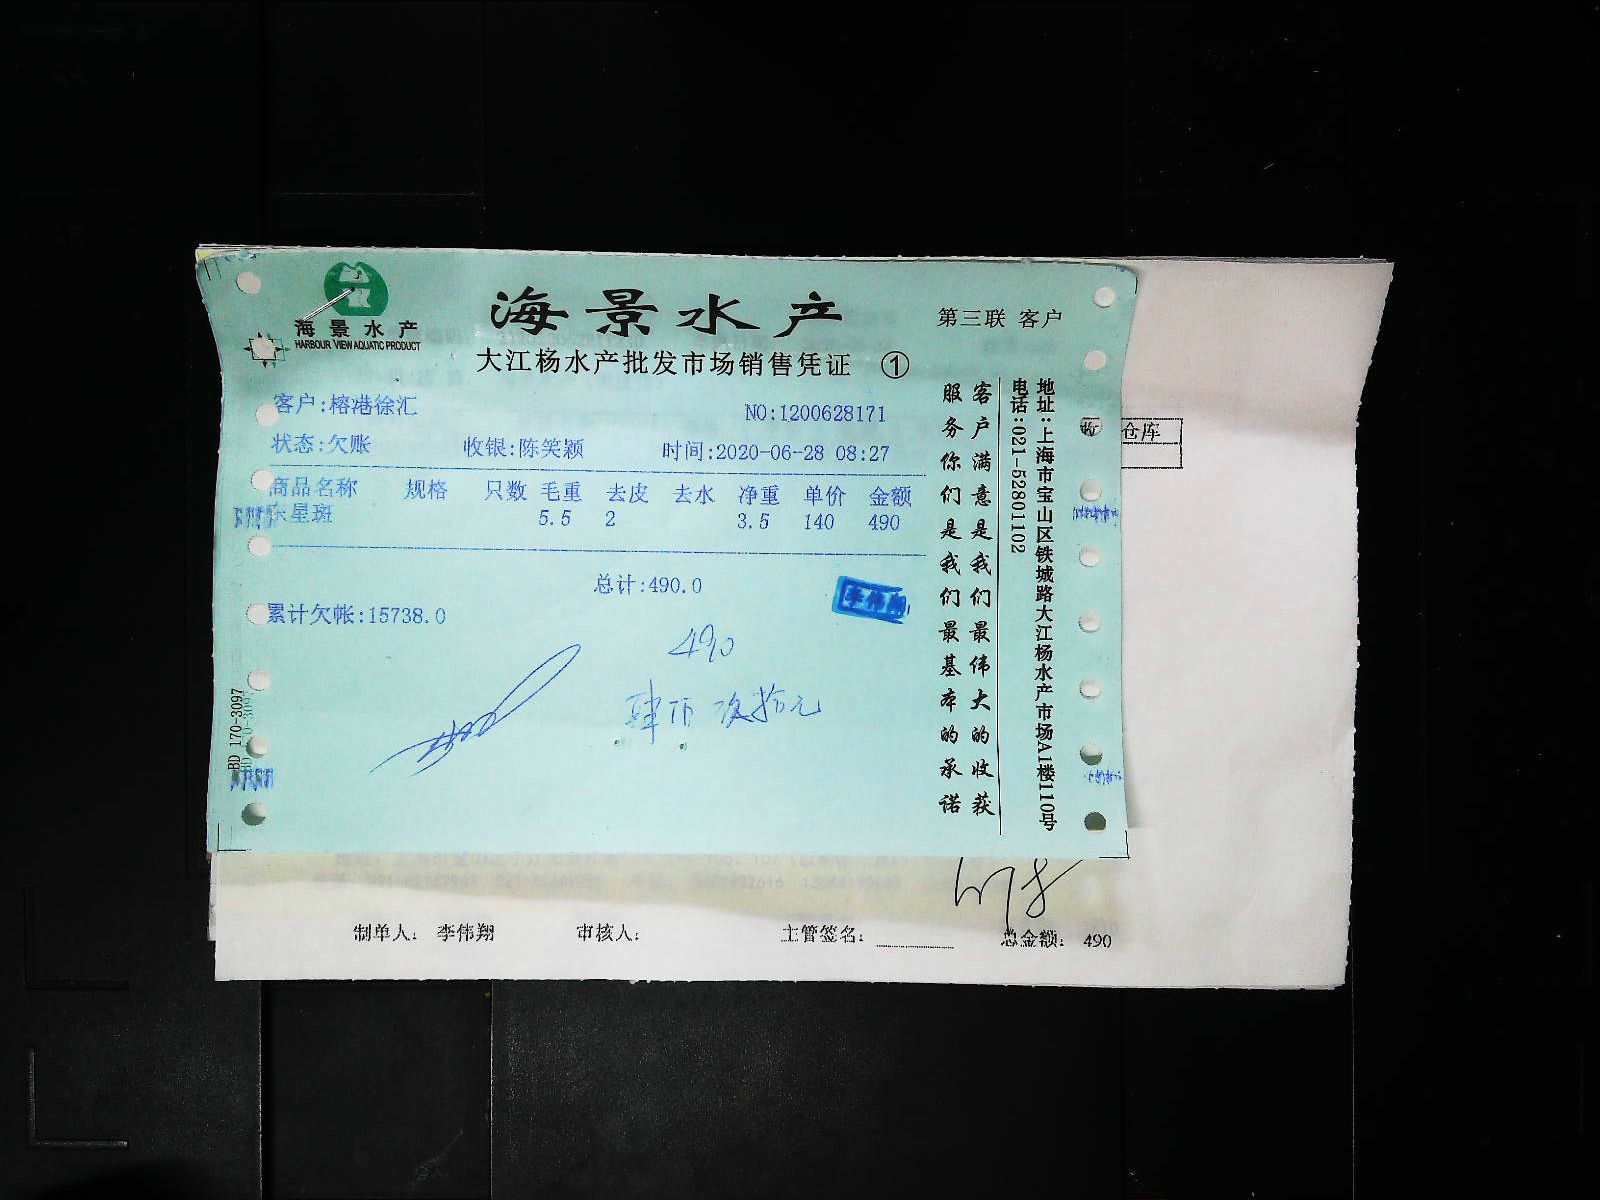 海景水产
HARBOUR VIEW AQUATIC PRODUCT
海景水产
第三联 客户
大江杨水产批发市场销售凭证 ①
客户:榕港徐汇
NO:1200628171
状态:欠账 收银:陈笑颖 时间:2020-06-28 08:27
商品名称 规格 只数 毛重 去皮 去水 净重 单价 金额
星斑 5.5 2 3.5 140 490
总计:490.0
累计欠帐:15738.0
李伟翔
490
肆佰玖拾元
客户满意是我们最伟大的收获
服务你们是我们最基本的承诺
地址:上海市宝山区铁城路大江杨水产市场A1楼110号
电话:021-52801102
BD 170-3097
收 仓库
制单人: 李伟翔 审核人: 主管签名: 总金额: 490